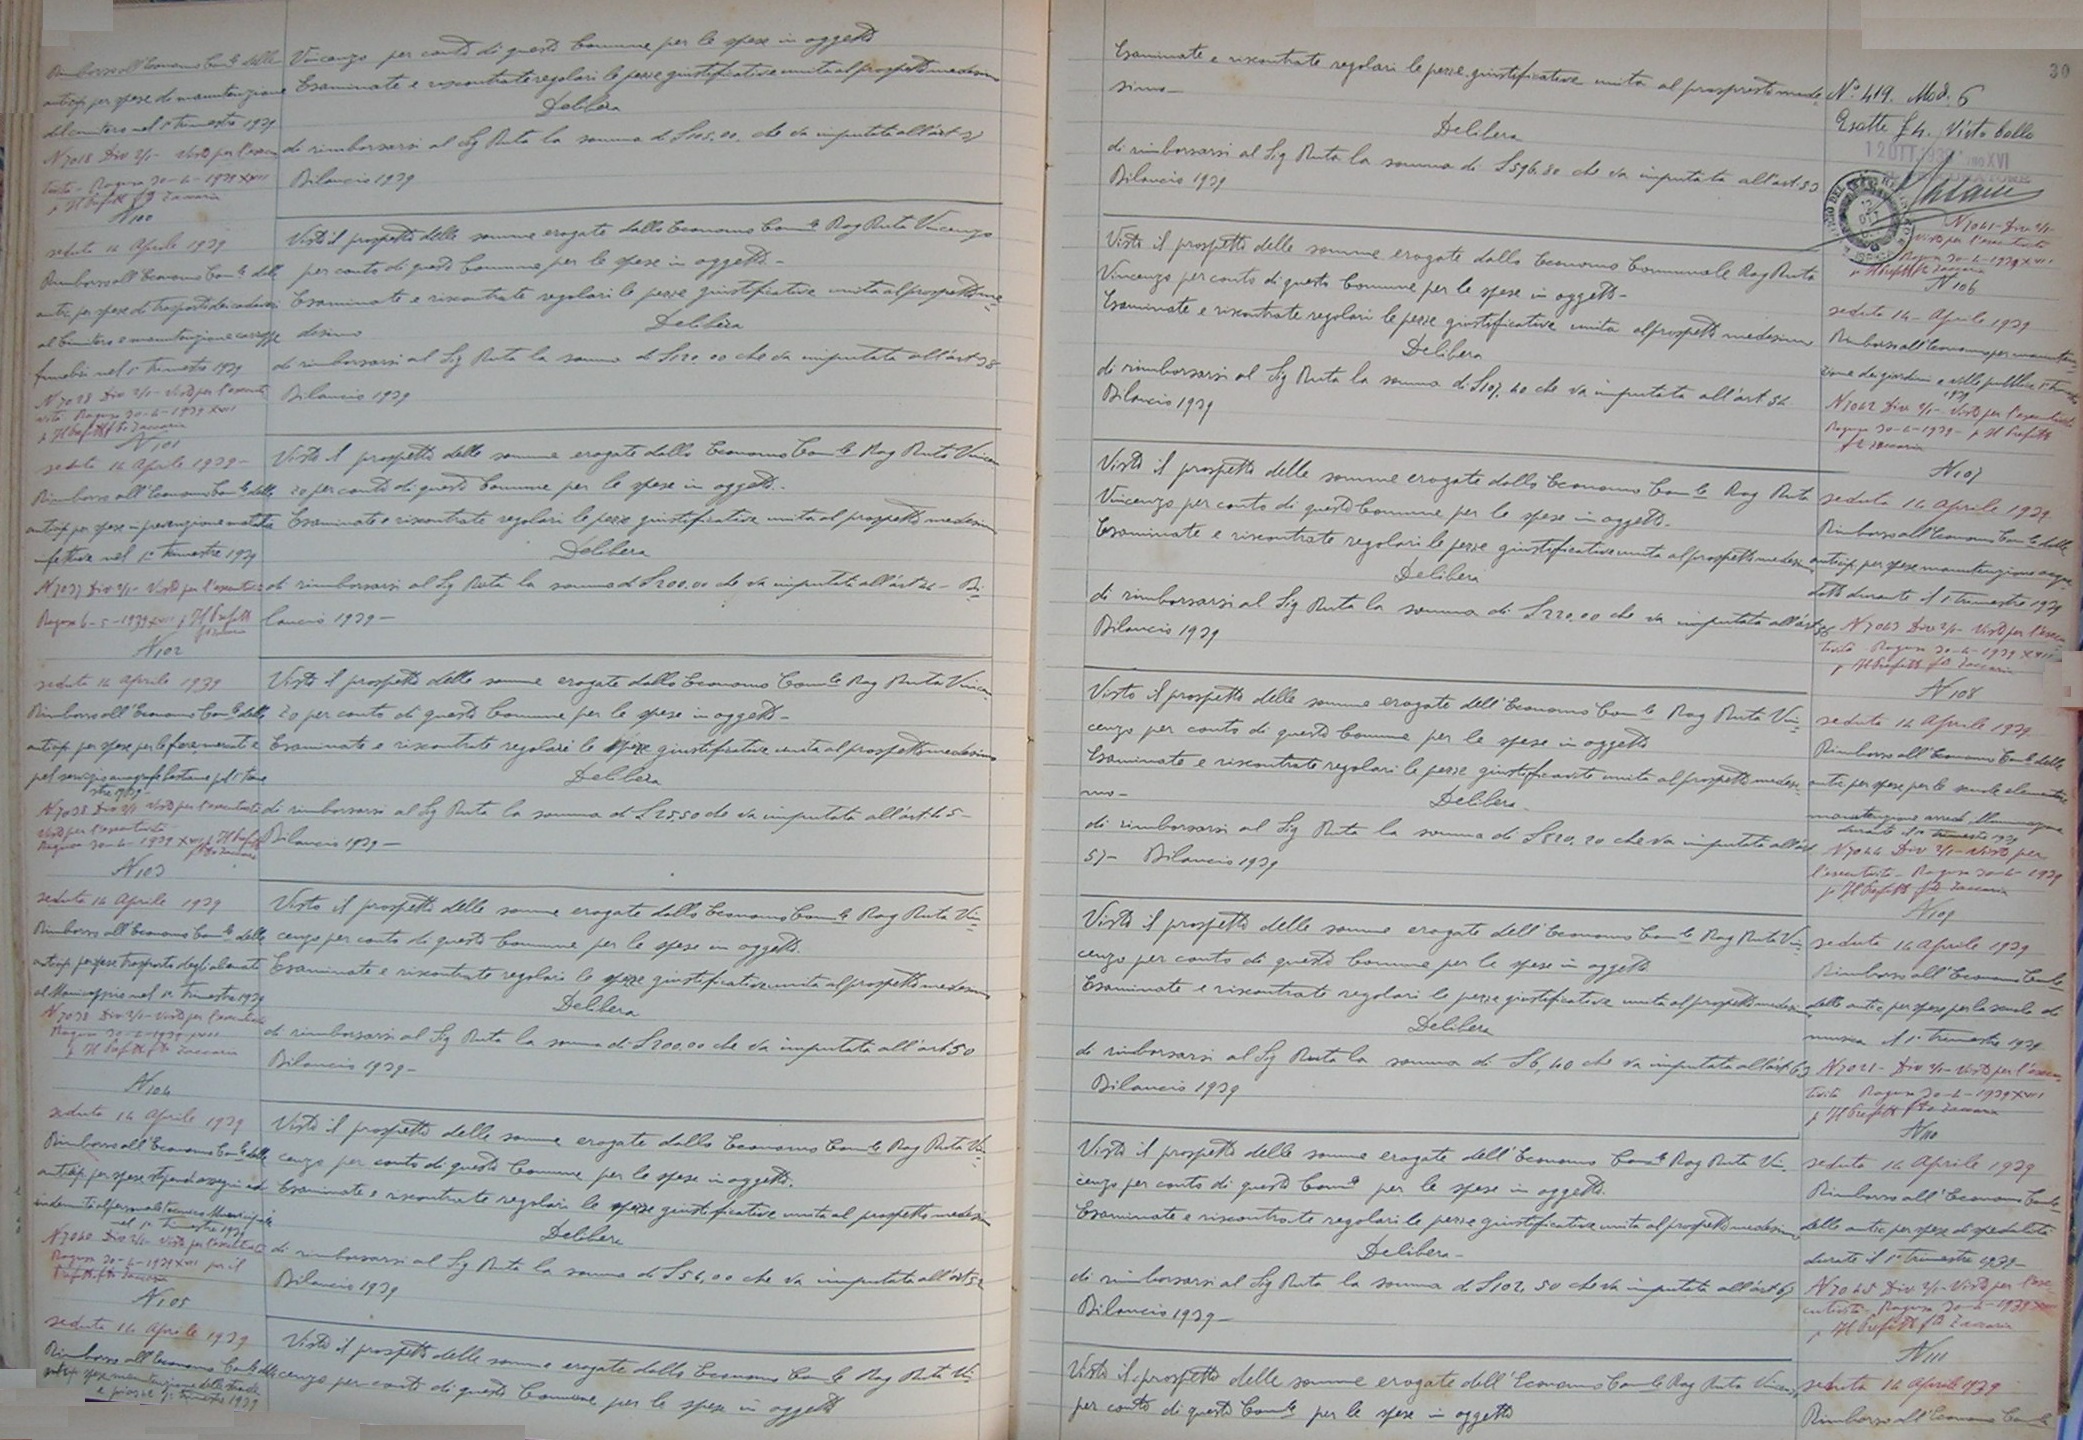 Rimborso all'Economo Com.le delle
anticip. per spese di manutenzione
del cimitero nel 1° trimestre 1939
N 7018 Div 2/1- Visto per l'esecu
tività - Ragusa 30-4-1939 XVII
p. Il Prefetto f.to Zaccaria
Vincenzo per conto di questo Comune per le spese in oggetto
Esaminate e riscontrate regolari le pezze giustificative unita al prospetto medesimo
Delibera
di rimborsarsi al Sig Ruta la somma di che va imputata all'art
Bilancio 1939
N 100
seduta 14 Aprile 1939
Rimborso all'Economo Com.le delle
antic. per spese di trasporto dei cadaveri
al Cimitero e manutenzione carrozze
funebri nel 1° trimestre 1939
Div 2/1- Visto per l'esecuti
vità Ragusa 30-4-1939 XVII
p Il Prefetto f.to Zaccaria
Visto il prospetto delle somme erogate dallo Economo Com.le Rag Ruta Vincenzo
per conto di questo Comune per le spese in oggetto -
Esaminate e riscontrate regolari le pezze giustificative unita al prospetto me=
desimo
Delibera
di rimborsarsi al Sig Ruta la somma di che va imputata all'art 38
Bilancio 1939
N 101
seduta 14 Aprile 1939-
Rimborso all'Economo Com.le delle
anticip. per spese in prevenzione malattie
infettive nel 1° trimestre 1939
N 7037 Div 2/1- Visto per l'esecutività
Ragusa 6-5-1939 XVII p Il Prefetto
f.to Zaccaria
Visto il prospetto delle somme erogate dallo Economo Com.le Rag Ruta Vincen
zo per conto di questo Comune per le spese in oggetto.-
Esaminate e riscontrate regolari le pezze giustificative unita al prospetto medesimo
Delibera
di rimborsarsi al Sig Ruta la somma di £200,00 che va imputata all'art - Bi=
lancio 1939-
N 102
seduta 14 Aprile 1939
Rimborso all'Economo Com.le delle
anticip. per spese per le fiere mercati e
pel servizio anagrafe bestiame pel 1° trime
stre 1939-
N 7038 Div 2/1 Visto per l'esecutività
Visto per l'esecutività
Ragusa 30-4-1939 XVII p Il Prefetto
f.to Zaccaria
Visto il prospetto delle somme erogate dallo Economo Com.le Rag Ruta Vincen
zo per conto di questo Comune per le spese in oggetto-
Esaminate e riscontrate regolari le pezze giustificative unita al prospetto medesimo
Delibera
di rimborsarsi al Sig Ruta la somma di che va imputata all'art 45-
Bilancio 1939-
N 103
seduta 14 Aprile 1939
Rimborso all'Economo Com.le delle
anticip. per spese trasporto degli alienati
al Manicomio nel 1° trimestre 1939
Div 2/1- Visto per l'esecutività
Ragusa 30-4-1939 XVII
p Il Prefetto f.to Zaccaria
Visto il prospetto delle somme erogate dallo Economo Com.le Rag Ruta Vin=
cenzo per conto di questo Comune per le spese in oggetto.
Esaminate e riscontrate regolari le pezze giustificative unita al prospetto medesimo
Delibera
di rimborsarsi al Sig Ruta la somma di £200,00 che va imputata all'art 50
Bilancio 1939-
N 104
seduta 14 Aprile 1939
Rimborso all'Economo Com.le delle
anticip. per spese stipendi assegni ed
indennità al personale tecnico Municipale
nel 1° trimestre 1939
N 7040 Div 2/1- Visto per l'esecutività
Ragusa 30-4-1939 XVII per il
Prefetto f.to Zaccaria
Visto il prospetto delle somme erogate dallo Economo Com.le Rag Ruta Vin=
cenzo per conto di questo Comune per le spese in oggetto.
Esaminate e riscontrate regolari le pezze giustificative unita al prospetto medesimo
Delibera
di rimborsarsi al Sig Ruta la somma di £54,00 che va imputata all'art 52
Bilancio 1939
N 105
seduta 14 Aprile 1939
Rimborso all'Economo Com.le delle
anticip. spese manutenzione delle strade
e piazze 1° trimestre 1939
Visto il prospetto delle somme erogate dallo Economo Com.le Rag Ruta Vin
cenzo per conto di questo Comune per le spese in oggetto
30
Esaminate e riscontrate regolari le pezze giustificative unita al prospetto mede=
simo-
Delibera
di rimborsarsi al Sig Ruta la somma di £596,80 che va imputata all'art 53
Bilancio 1939
N° 419. Mod. 6
Esatte £4. Visto bollo
12 OTT. 1938 Anno XVI
N 7041- Div 2/1-
Visto per l'esecutività
Ragusa 30-4-1939 XVII
p Il Prefetto f.to Zaccaria
N 106
seduta 14- Aprile 1939
Rimborso all'Economo per manuten=
zione dei giardini e ville pubbliche 1° trimestre
1939
N 7042 Div 2/1- Visto per l'esecutività
Ragusa 30-4-1939- p Il Prefetto
f.to Zaccaria
Visto il prospetto delle somme erogate dallo Economo Comunale Rag Ruta
Vincenzo per conto di questo Comune per le spese in oggetto-
Esaminate e riscontrate regolari le pezze giustificative unita al prospetto medesimo
Delibera
di rimborsarsi al Sig Ruta la somma di £107,40 che va imputata all'art 54
Bilancio 1939
N 107
seduta 14 Aprile 1939
Rimborso all'Economo Com.le delle
anticip. per spese manutenzione acque
dotto durante il 1° trimestre 1939
N 7043 Div 2/1- Visto per l'esecu
tività Ragusa 30-4-1939 XVII
p Il Prefetto f.to Zaccaria
Visto il prospetto delle somme erogate dallo Economo Com.le Rag Ruta
Vincenzo per conto di questo Comune per le spese in oggetto.
Esaminate e riscontrate regolari le pezze giustificative unita al prospetto medesimo
Delibera
di rimborsarsi al Sig Ruta la somma di £220,00 che va imputata all'art
Bilancio 1939
N 108
seduta 14 Aprile 1939
Rimborso all'Economo Com.le delle
antic. per spese per le scuole elementari
manutenzione arredi illuminazione
durante il 1° trimestre 1939
N 7044 Div 2/1- Visto per
l'esecutività- Ragusa 30-4-1939
p Il Prefetto f.to Zaccaria
Visto il prospetto delle somme erogate dell'Economo Com.le Rag Ruta Vin=
cenzo per conto di questo Comune per le spese in oggetto
Esaminate e riscontrate regolari le pezze giustificative unita al prospetto medesi=
mo-
Delibera-
di rimborsarsi al Sig Ruta la somma di £820,20 che va imputata all'art
57- Bilancio 1939
N 109
seduta 14 Aprile 1939
Rimborso all'Economo Com.le
delle antic. per spese per la scuola di
musica il 1° trimestre 1939
Div 2/1- Visto per l'esecu=
tività Ragusa 30-4-1939 XVII
p Il Prefetto f.to Zaccaria
Visto il prospetto delle somme erogate dell'Economo Com.le Rag Ruta Vin=
cenzo per conto di questo Comune per le spese in oggetto
Esaminate e riscontrate regolari le pezze giustificative unita al prospetto medesimo
Delibera
di rimborsarsi al Sig Ruta la somma di £6,40 che va imputata all'art 63
Bilancio 1939
N 110
seduta 14 Aprile 1939
Rimborso all'Economo Com.le
delle antic. per spese di spedalità
durante il 1° trimestre 1939-
N 7045 Div 2/1- Visto per l'ese
cutività- Ragusa 30-4-1939 XVII
p Il Prefetto f.to Zaccaria
Visto il prospetto delle somme erogate dell'Economo Com.le Rag Ruta Vin=
cenzo per conto di questo Com.e per le spese in oggetto.
Esaminate e riscontrate regolari le pezze giustificative unita al prospetto medesimo
Delibera-
di rimborsarsi al Sig Ruta la somma di £102,50 che va imputata all'art
Bilancio 1939-
N 111
seduta 14 Aprile 1939
Rimborso all'Economo Com.le
Visto il prospetto delle somme erogate dell'Economo Com.le Rag Ruta Vincenzo
per conto di questo Com.e per le spese in oggetto